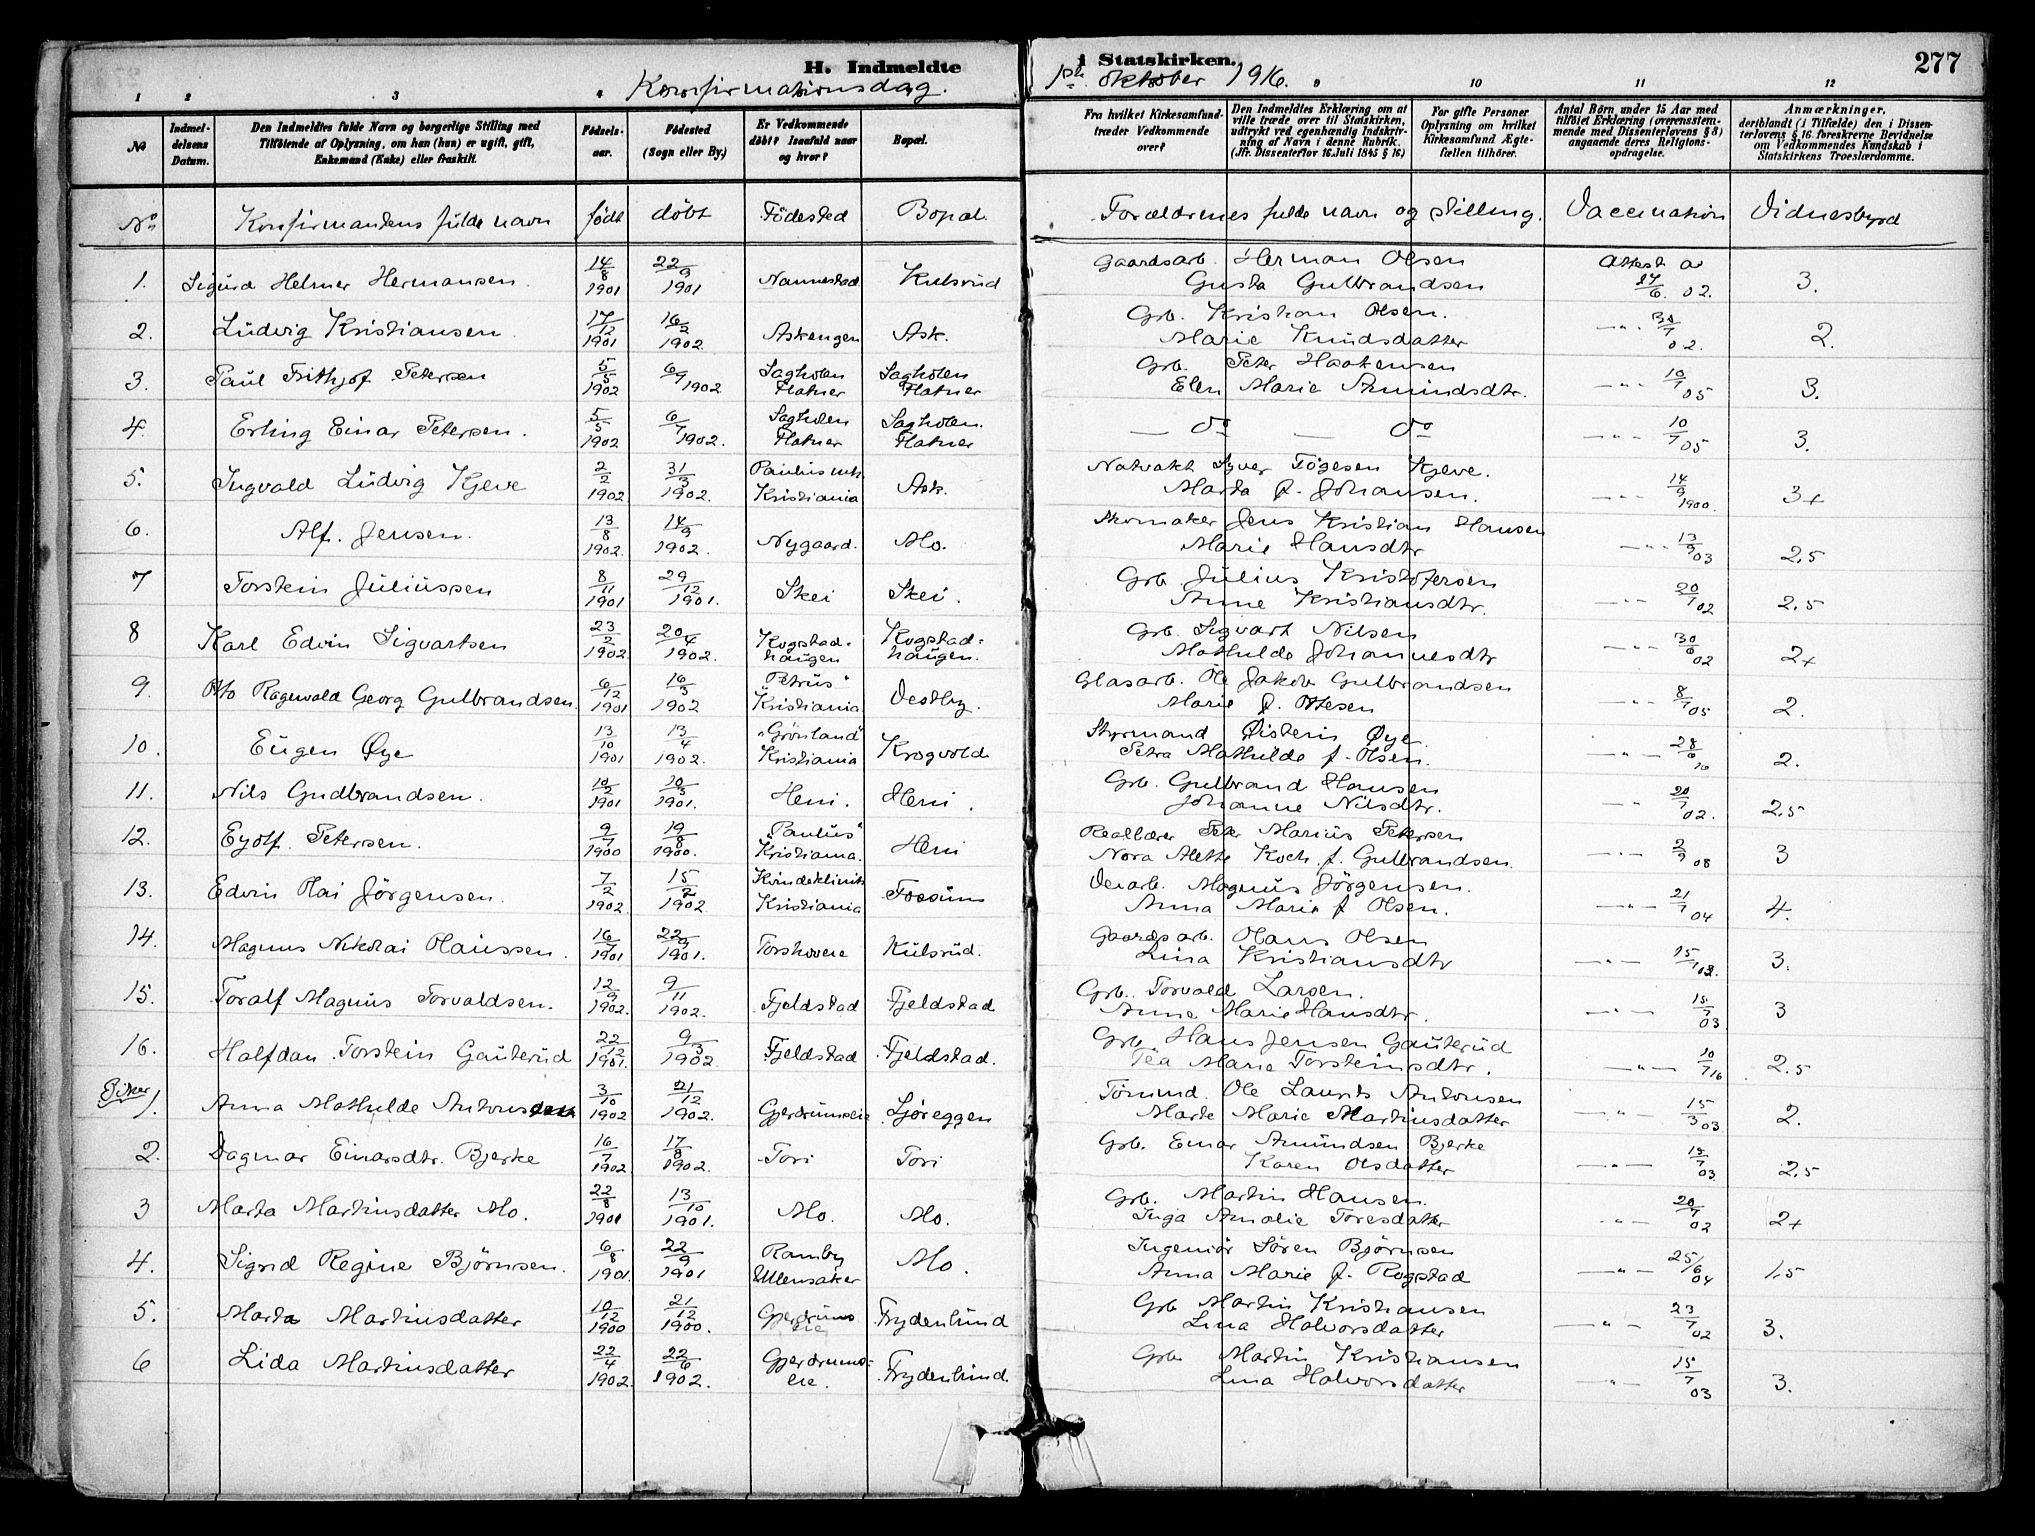 H. Indmeldte
i Statskirken.
277
Konfirmationsdag.
1ste oktober 1916.
1 2 3 4
9 10 11 12
No
Indmeldelsens Datum.
Den Indmeldtes fulde Navn og borgerlige Stilling med Tilföiende af Oplysning, om han (hun) er ugift, gift, Enkemand (Enke) eller fraskilt.
Födselsaar.
Födested (Sogn eller By.)
Er Vedkommende döbt? Isaafald naar og hvor?
Bopæl.
Fra hvilket Kirkesamfund træder Vedkommende over?
Den Indmeldtes Erklæring om at ville træde over til Statskirken, udtrykt ved egenhændig Indskrivning af Navn i denne Rubrik. (Jfr. Dissenterlov 16. Juli 1845 § 16)
For gifte Personer Oplysning om hvilket Kirkesamfund Ægtefællen tilhörer.
Antal Börn under 15 Aar med tilföiet Erklæring (overensstemmende med Dissenterlovens § 8) angaaende deres Religionsopdragelse.
Anmærkninger, deriblandt (i Tilfælde) den i Dissenterlovens § 16 foreskrevne Bevidnelse om Vedkommendes Kundskab i Statskirkens Troeslærdomme.
No Konfirmandens fulde navn født döbt Födested Bopæl. Forældrenes fulde navn og stilling. Vaccination Vidnesbyrd
1. Sigurd Helmer Hermansen. 14/8 1901 22/9 1901 Nannestad Kulsrud Gaardsarb. Herman Olsen Gusta Gulbrandsen Attest av 17/6. 02. 3.
2. Ludvig Kristiansen. 17/12 1901 16/2 1902. Askengen Ask. Grb. Kristian Olsen. Marie Knudsdatter — " — 30/7 02. 2.
3. Paul Frithjof Petersen 5/5 1902 6/7 1902 Sagholen Flatner Sagholen Flatner Grb. Peter Haakensen Elen Marie Amundsdtr. — " — 10/7 05 3.
4. Erling Einar Petersen. 5/5 1902 6/7 1902. Sagholen Flatner Sagholen. Flatner — do — do — " — 10/7 05 3.
5. Ingvald Ludvig Kjeve 2/2 1902. 31/3 1902. Paulus mh. Kristiania Ask. Natvakt Syver Kjeve. Marta f. Johansen. — " — 14/9 1900. 3+
6. Alf. Jensen. 13/8 1902. 14/9 1902. Nygaard. Mo. Skomaker Jens Kristian Hansen Marie Hansdtr — " — 13/9 03 2,5
7 Torstein Juliussen 8/11 1901 29/12 1901. Skei Skei. Grb. Julius Kristofersen Anne Kristiansdtr. — " — 20/7 02 2,5
8 Karl Edvin Sigvartsen 23/2 1902. 20/4 1902. Kogstadhaugen Kogstadhaugen. Grb. Sigvart Nilsen Mathilde Johannesdtr — " — 30/6 02 2+
9. Otto Ragnvald Georg Gulbrandsen. 6/12 1901 16/3 1902 "Petrus" Kristiania Vestby. Glasarb. Ole Jakob Gulbrandsen Marie f. Ottesen — " — 8/7 05 2.
10. Eugen Øye 13/10 1901 13/4 1902. "Grönland" Kristiania Krogvold Styrmand Øistein Øye. Petra Mathilde f. Olsen. — " — 28/6 16 2.
11. Nils Gudbrandsen. 10/2 1901 10/3 1901. Heni. Heni. Grb. Gulbrand Hansen Johanne Nilsdtr. — " — 20/7 02. 2,5
12. Eyolf. Petersen. 9/7 1900 19/8 1900. "Paulus" Kristiania. Heni Reallærer Peter Marius Petersen Nora Mette Koch. f. Gulbrandsen. — " — 2/9 08 3
13. Edvin Olai Jörgensen. 7/2 1902. 15/2 1902 Kvindeklinik Kristiania Fossum Veiarb. Magnus Jörgensen. Anna Marie f Olsen. — " — 21/7 04 4.
14. Magnus Nikolai Olaussen. 16/7 1901 22/9 1901. Torshoveie Kulsrud. Gaardsarb. Olaus Olsen Lina Kristiansdtr — " — 15/7 03. 3.
15. Toralf Magnus Torvaldsen. 12/9 1902. 9/11 1902. Fjeldstad Fjeldstad Grb. Torvald Larsen. Anne Marie Hansdtr. — " — 15/7 03 3
16. Halfdan Torstein Gauterud 22/12 1901. 9/3 1902 Fjeldstad Fjeldstad. Grb. Hans Jensen Gauterud Tea Marie Torsteinsdtr. — " — 10/7 16 2.5
Piker 1. Anna Mathilde Antonsdatter 3/10 1902 21/12 1902. Gjerdrumseie Ljøreggen Tömmd. Ole Laurits Antonsen Marte Marie Martinsdatter — " — 15/3 03. 2.
2. Dagmar Einarsdtr. Bjerke 16/7 1902. 17/8 1902. Tori Tori Grb. Einar Amundsen Bjerke Karen Olsdatter — " — 15/7 03. 2,5
3 Marta Martinsdatter Mo. 22/8 1901 13/10 1901. Mo. Mo. Grb. Martin Hansen. Inga Amalie Toresdatter — " — 20/7 02 2+
4. Sigrid Regine Bjørnsen. 6/8 1901. 22/9 1901 Ramby Ullensaker Mo. Ingeniör Sören Bjørnsen Anna Marie f. Rogstad — " — 25/6 04 1,5
5. Marta Martinsdatter 10/12 1900 21/12 1900. Gjerdrumseie Frydenlund Grb Martin Kristiansen Lina Halvorsdatter — " — 23/7 02 3.
6 Lida Martinsdatter 22/4 1902. 22/6 1902. Gjerdrumseie. Frydenlund. Grb. Martin Kristiansen Lina Halvorsdatter — " — 15/7 03 3.